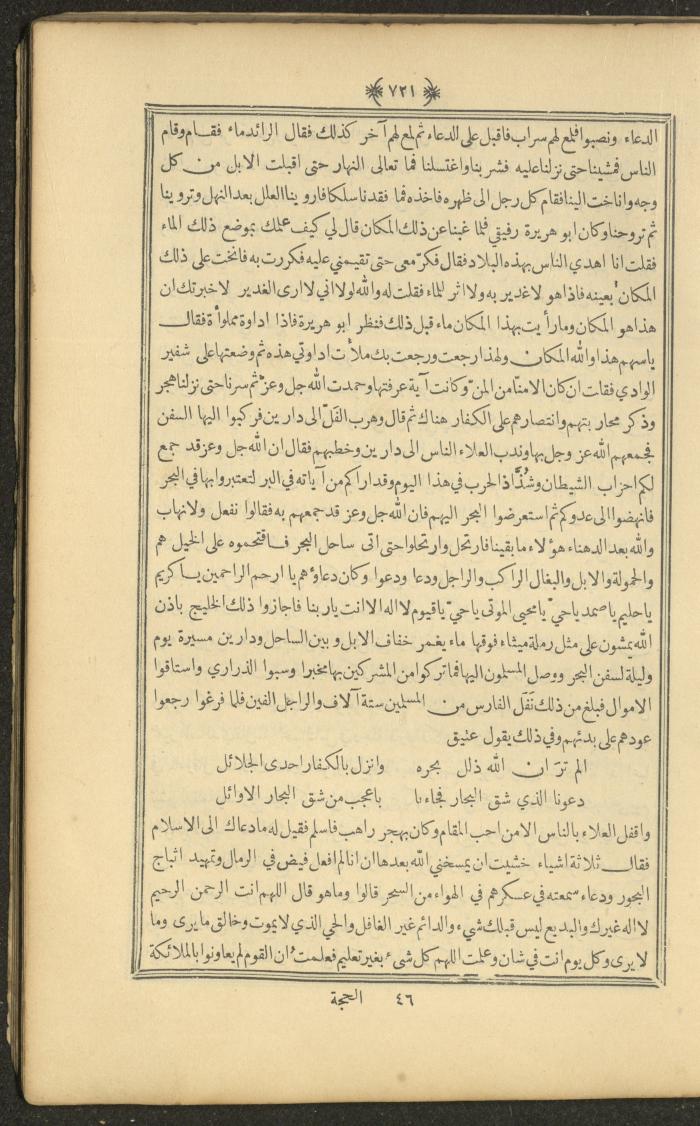 ﴿ ٧٢١ ﴾
الدعاء ونصبوا فلمع لهم سراب فاقبل على الدعاء ثم لمع لهم آخر كذلك فقال الرائد ماء فقام وقام
الناس فمشينا حتى نزلنا عليه فشربنا واغتسلنا فما تعالى النهار حتى اقبلت الابل من كل
وجه واناخت الينا فقام كل رجل الى ظهره فاخذه فما فقدنا سلكا فاروينا العلل بعد النهل وتروينا
ثم تروحنا وكان ابو هريرة رفيقي فلما غبنا عن ذلك المكان قال لي كيف علمك بموضع ذلك الماء
فقلت انا اهدي الناس بهذه البلاد فقال فكرّ معى حتى تقيمني عليه فكررت به فانخت على ذلك
المكان بعينه فاذا هو لا غدير به ولا اثر للماء فقلت له والله لولا اني لا ارى الغدير لاخبرتك ان
هذا هو المكان وما رأيت بهذا المكان ماء قبل ذلك فنظر ابو هريرة فاذا اداوة مملوأة فقال
ياسهم هذا والله المكان ولهذا رجعت ورجعت بك ملأت اداوتي هذه ثم وضعتها على شفير
الوادي فقلت ان كان الامنّا من المنّ وكانت آية عرفتها وحمدت الله جل وعز ثم سرنا حتى نزلنا هجر
وذكر محاربتهم وانتصارهم على الكفار هناك ثم قال وهرب الفَلّ الى دارين فركبوا اليها السفن
فجمعهم الله عز وجل بها وندب العلاء الناس الى دارين وخطبهم فقال ان الله جل وعز قد جمع
لكم احزاب الشيطان وشُذَّاذ الحرب في هذا اليوم وقد اراكم من آياته في البر لتعتبروا بها في البحر
فانهضوا الى عدوكم ثم استعرضوا البحر اليهم فان الله جل وعز قد جمعهم به فقالوا نفعل ولا نهاب
والله بعد الدهناء هولاء ما بقينا فارتحل وارتحلوا حتى اتى ساحل البحر فاقتحموه على الخيل هم
والحمولة والابل والبغال الراكب والراجل ودعا ودعوا وكان دعاؤهم يا ارحم الراحمين يا كريم
يا حليم يا صمد يا حيّ يا محيى الموتى يا حيّ يا قيوم لا اله الا انت يا ربنا فاجازوا ذلك الخليج باذن
الله يمشون على مثل رملة ميثاء فوقها ماء يغمر خفاف الابل و بين الساحل ودارين مسيرة يوم
وليلة لسفن البحر ووصل المسلمون اليها فما تركوا من المشركين بها مخبرا وسبوا الذراري واستاقوا
الاموال فبلغ من ذلك نَفَل الفارس من المسلمين ستة آلاف والراجل الفين فلما فرغوا رجعوا
عودهم على بدئهم وفي ذلك يقول عنيق
الم ترَ ان الله ذلل بحره وانزل بالكفار احدى الجلائل
دعونا الذي شق البحار فجاءنا باعجب من شق البحار الاوائل
واقفل العلاء بالناس الا من احب المقام وكان بهجر راهب فاسلم فقيل له ما دعاك الى الاسلام
فقال ثلاثة اشياء خشيت ان يمسخني الله بعدها ان انا لم افعل فيض في الرمال وتمهيد اثباج
البحور ودعاء سمعته في عسكرهم في الهواء من السحر قالوا وما هو قال اللهم انت الرحمن الرحيم
لا اله غيرك والبديع ليس قبلك شيء والدائم غير الغافل والحي الذي لا يموت وخالق ما يرى وما
لا يرى وكل يوم انت في شان وعلمت اللهم كل شيء بغير تعليم فعلمت ان القوم لم يعاونوا بالملائكة
٤٦ الحجة